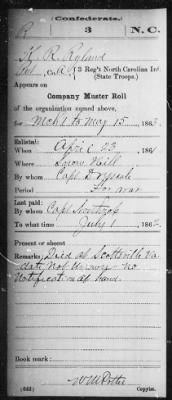 Confederate.
R 3 N.C.
K. R. Ryland
Pvt, Co. A, 3 Reg't North Carolina Inf.
(State Troops.)
Appears on
Company Muster Roll
of the organization named above,
for Mch 1 to May 15, 1863.
Enlisted:
When April 23, 1861
Where Snow Hill
By whom Capt Drysdale
Period For war
Last paid:
By whom Capt
To what time July 1, 1862
Present or absent
Remarks: Died at Scottsville Va
date not known no
notification at hand.
Book mark:
(642) Copyist.